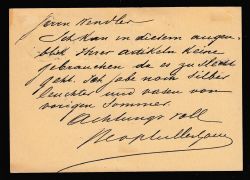 Herrn Vendler
Ich kan in diesem augen
blik Ihrer artikeln keine
gebrauchen da es zu slecht
geht. Ich habe noch silber
leuchter und vasen vom
vorigen Sommer.
Achtungsvoll